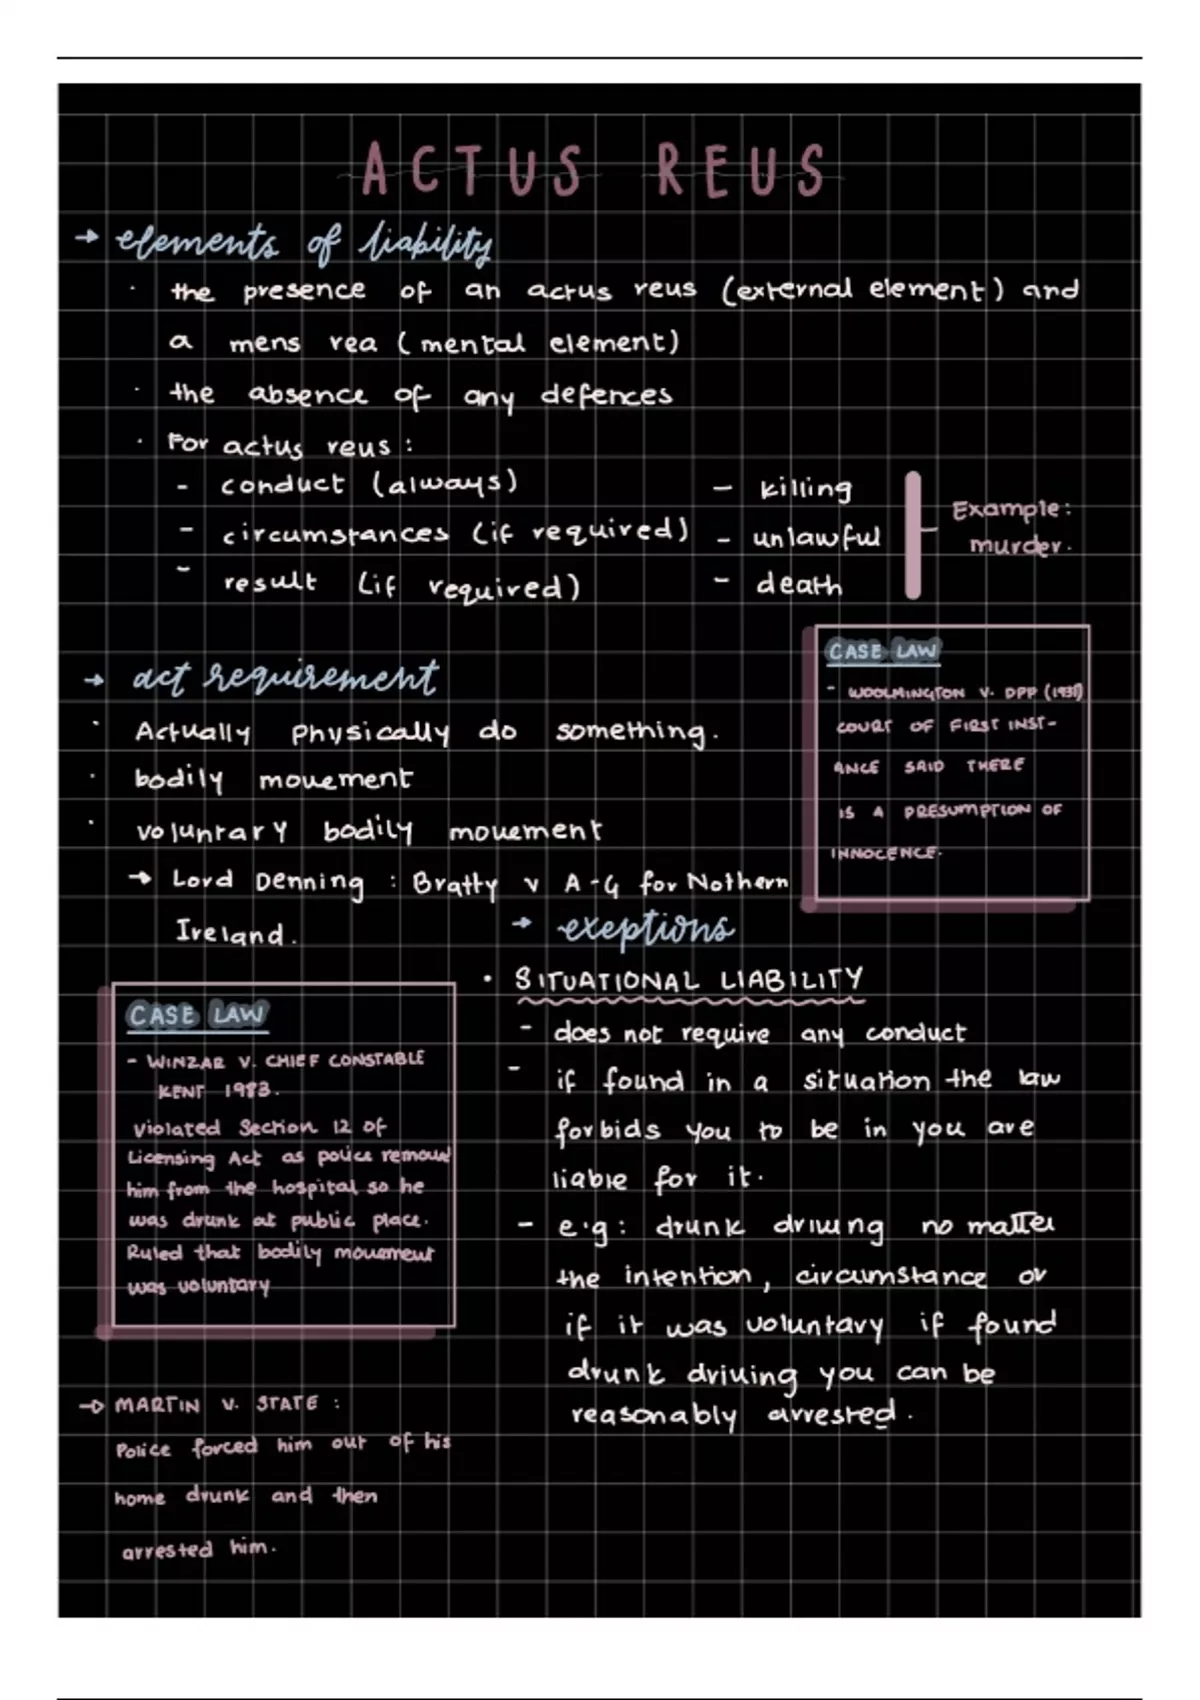 ACTUS REUS
→ elements of liability
· the presence of an actus reus (external element) and
a mens rea (mental element)
· the absence of any defences
· For actus reus :
- conduct (always)
- circumstances (if required)
- result (if required)
- killing
- unlawful
- death
Example:
murder.
CASE LAW
- WOOLMINGTON V. DPP (1931)
COURT OF FIRST INST-
ANCE SAID THERE
IS A PRESUMPTION OF
INNOCENCE.
→ act requirement
· Actually physically do something.
· bodily movement
· voluntary bodily movement
→ Lord Denning : Bratty v A-G for Nothern
Ireland.
CASE LAW
- WINZAR V. CHIEF CONSTABLE
KENT 1983.
violated Section 12 of
Licensing Act as police remove
him from the hospital so he
was drunk at public place.
Ruled that bodily movement
was voluntary
→ MARTIN V. STATE :
Police forced him out of his
home drunk and then
arrested him.
→ exeptions
· SITUATIONAL LIABILITY
- does not require any conduct
- if found in a situation the law
forbids you to be in you are
liable for it.
- e.g: drunk driving no matter
the intention, circumstance or
if it was voluntary if found
drunk driving you can be
reasonably arrested.